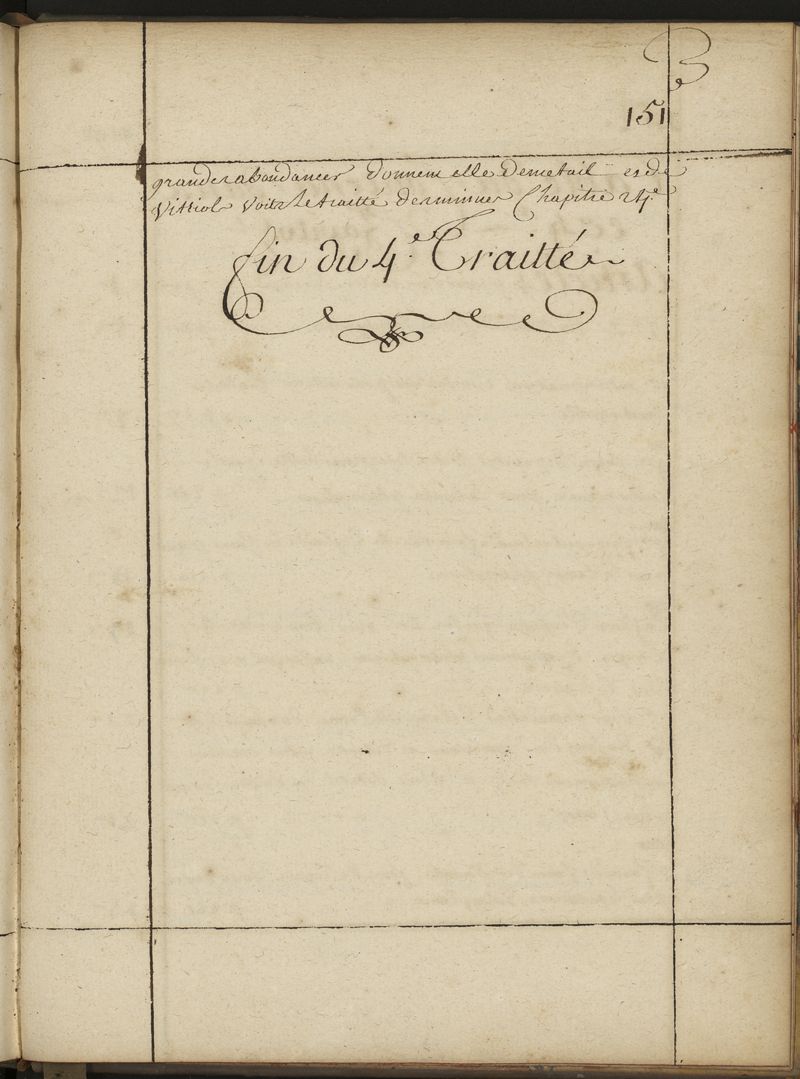 151
grandes abondances donnent elle de metail et de
Vittiol voiez le traitté des mines Chapitre 24.e
fin du 4.e Traitté